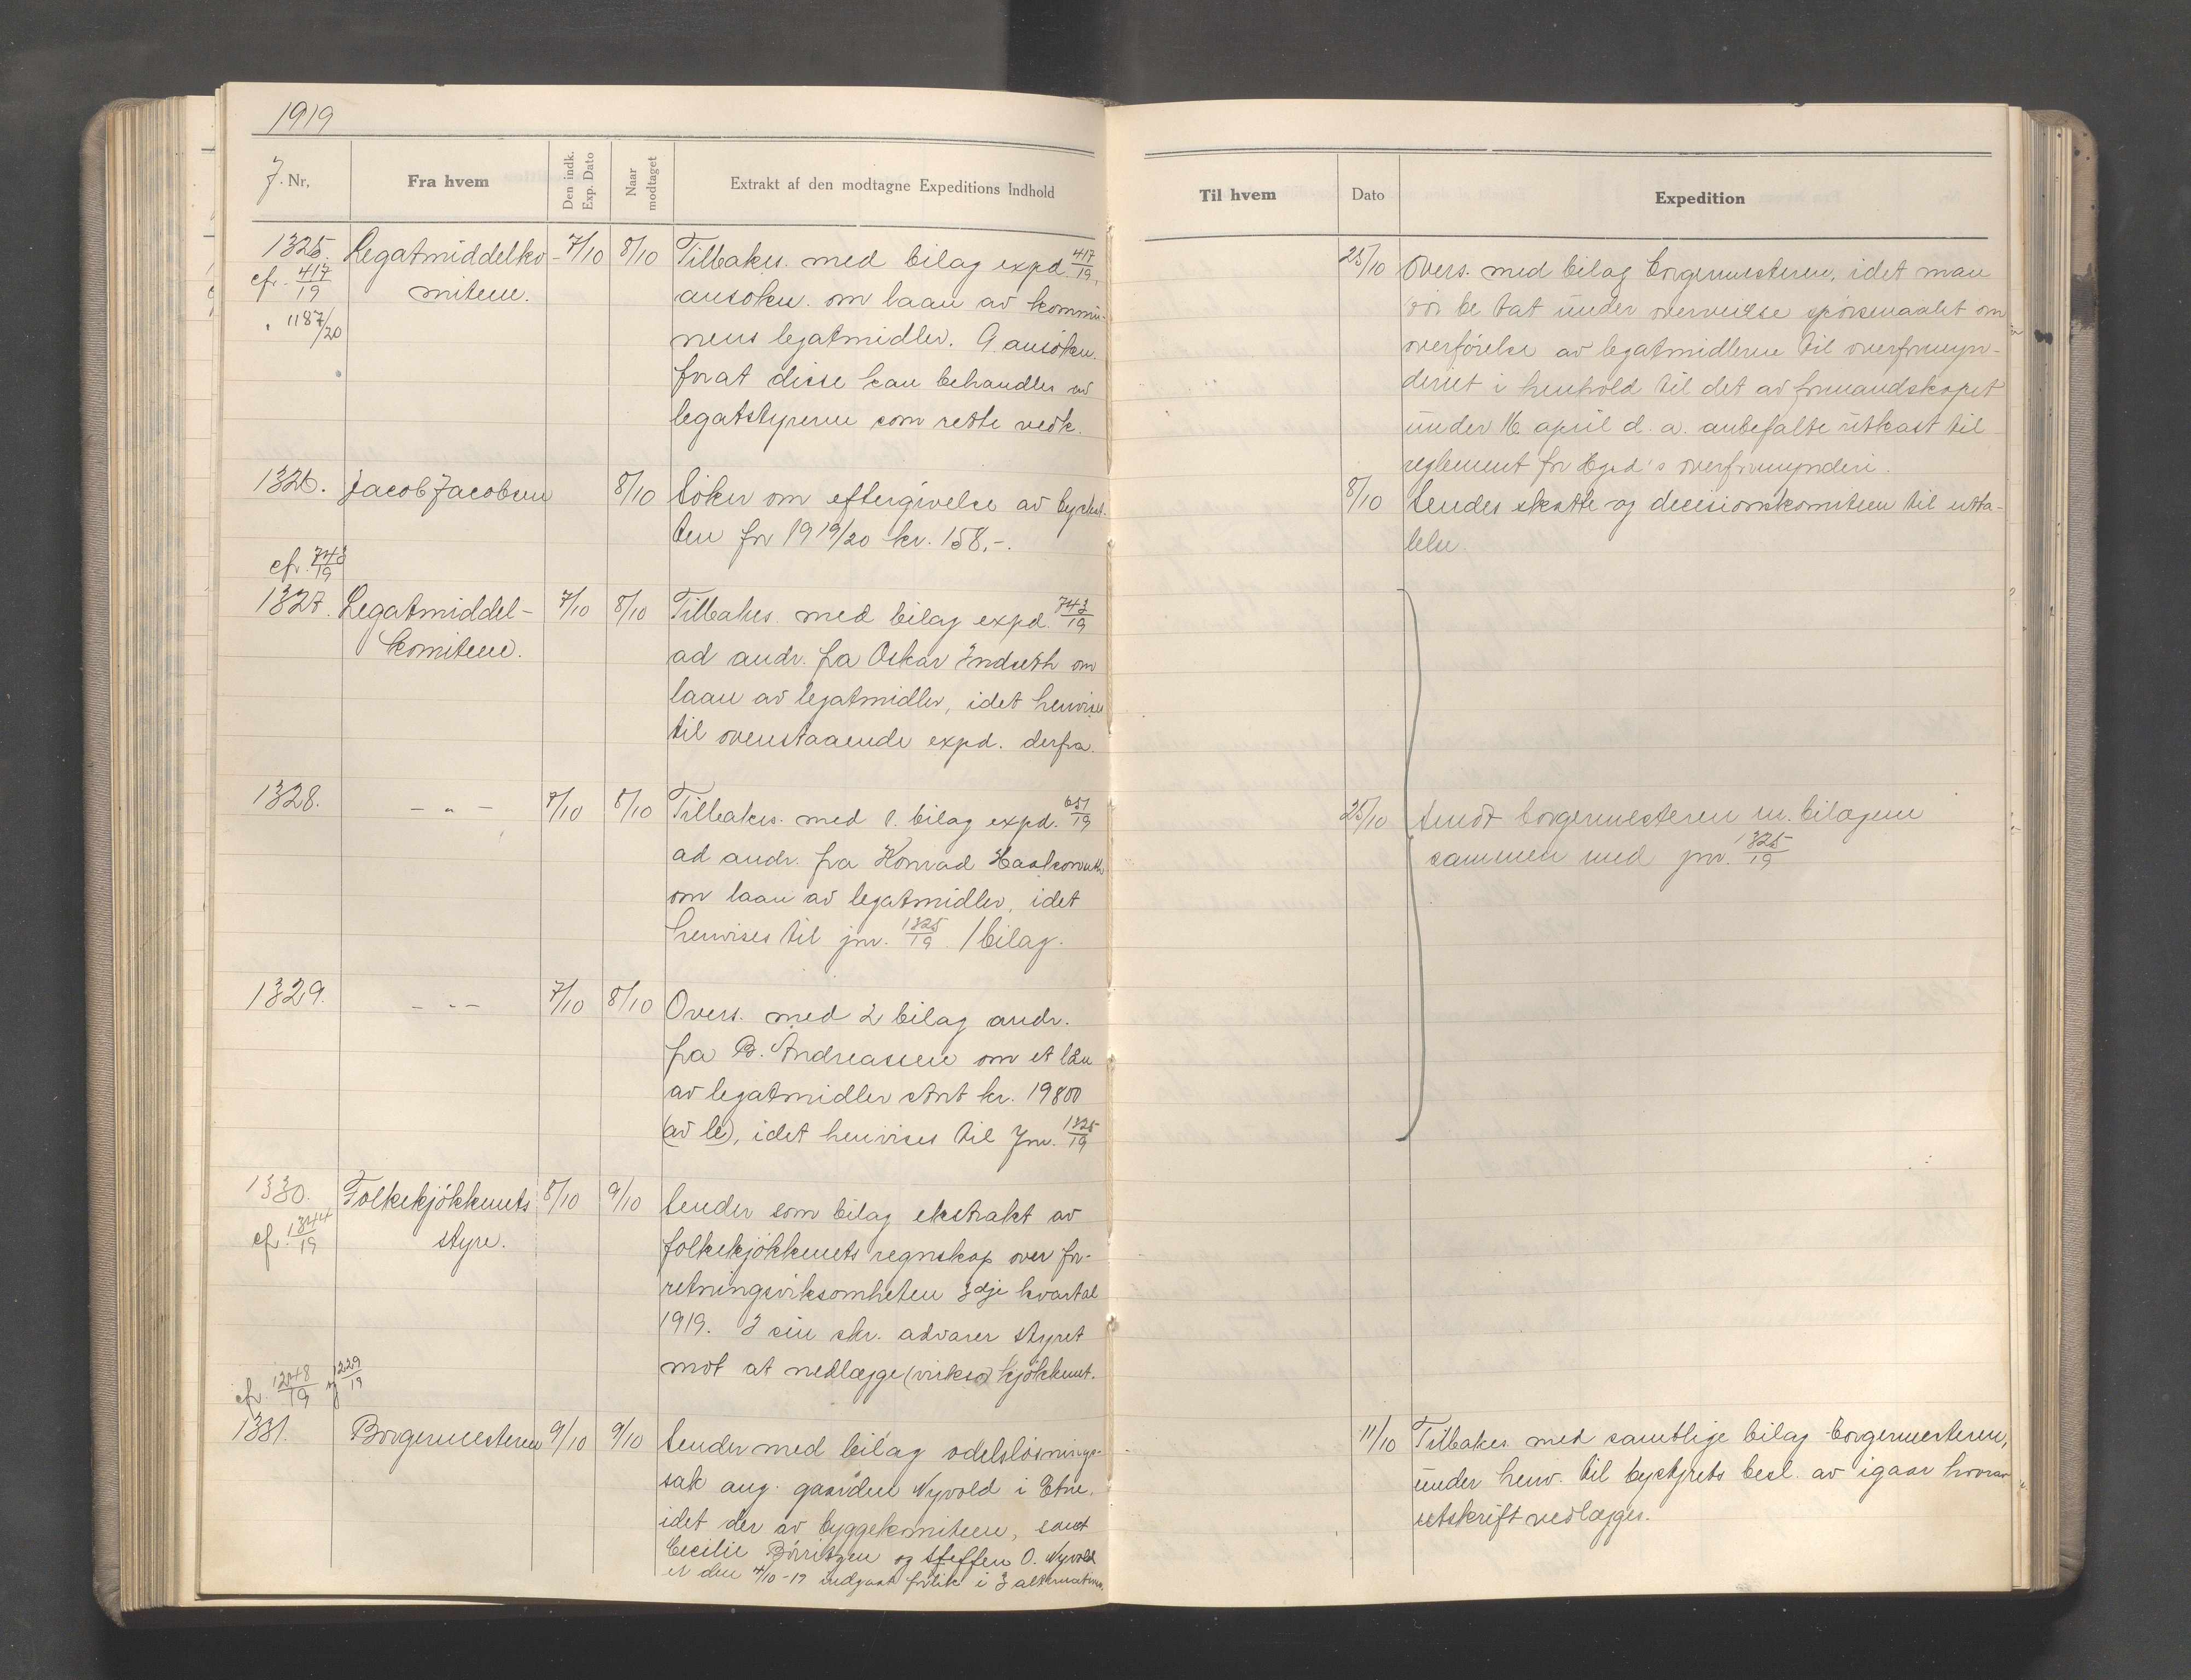 1919
J. Nr.
Fra hvem
Den indk. Exp. Dato
Naar modtaget
Extrakt af den modtagne Expeditions Indhold
Til hvem
Dato
Expedition
1325.
cfr. 417/19
" 1187/20
Legatmiddelko-
miteen.
7/10
8/10
Tilbakes. med bilag expd. 417/19,
ansøkn. om laan av kommu-
nens legatmidler. 9 ansøkn.
forat disse kan behandles av
legatstyrerne som rette vedk.
25/10
Overs. med bilag borgermesteren, idet man
bør be tat under overveielse spørsmaalet om
overførelse av legatmidlerne til overformyn-
deriet i henhold til det av formandskapet
under 16 april d. a. anbefalte utkast til
reglement for Hgsd's overformynderi.
1326.
Jacob Jacobsen
8/10
Søker om eftergivelse av byskat-
ten for 1919/20 kr. 158,-.
8/10
Sendes skatte og decisionskomiteen til utta-
lelse.
cfr. 743/19
1327.
Legatmiddel-
komiteen.
7/10
8/10
Tilbakes. med bilag expd. 743/19
ad andr. fra Oskar Indseth om
laan av legatmidler, idet henvises
til ovenstaaende expd. derfra.
1328.
- " -
7/10
8/10
Tilbakes. med 1. bilag expd. 651/19
ad andr. fra Konrad
om laan av legatmidler, idet
henvises til jnr. 1325/19 1 bilag.
25/10
Sendt borgermesteren m. bilagene
sammen med jnr. 1325/19
1329.
- " -
7/10
8/10
Overs. med 2 bilag andr.
fra B. Andreassen om et lån
av legatmidler stort kr. 19800
(av le), idet henvises til Jnr. 1325/19
1330.
cfr. 1344/19
Folkekjøkkenets
styre.
8/10
9/10
Sender som bilag ekstrakt av
folkekjøkkenets regnskap over for-
retningsvirksomheten 3dje kvartal
1919. I sin skr. advarer styret
mot at nedlægge (virkso) kjøkkenet.
cfr. 1248/19 og 1229/19
1331.
Borgermesteren
9/10
9/10
Sender med bilag odelsløsnings-
sak ang. gaarden Nyvold i Etne,
idet der av byggekomiteen, samt
Cecilie Børritzen og Steffen O. Nyvold
er den 7/10-19 indgaat forlik i 3 alternativer.
11/10
Tilbakes. med samtlige bilag borgermesteren,
under henv. til bystyrets besl. av igaar hvorav
utskrift vedlægges.